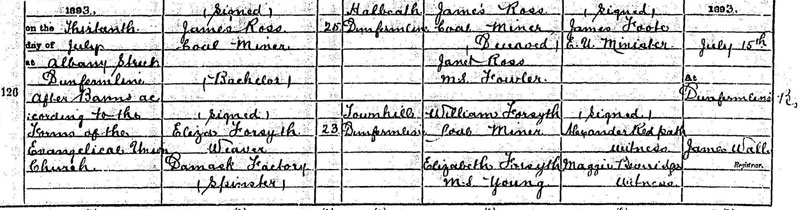 126
1893.
on the Thirteenth
day of July
at Albany Street
Dunfermline
After Banns ac
cording to the
Forms of the
Evangelical Union
Church.
(Signed)
James Ross
Coal Miner
(Bachelor)
(Signed)
Eliza Forsyth
Weaver
Damask Factory
(Spinster)
25
23
Halbeath
Dunfermline
Townhill
Dunfermline
James Ross
Coal Miner
(Deceased)
Janet Ross
M.S. Fowler.
William Forsyth
Coal Miner
Elizabeth Forsyth
M.S. Young.
(Signed)
James Foote
E.U. Minister.
(Signed)
Alexander Redpath
Witness.
Maggie
Witness.
1893.
July 15th
at
Dunfermline
James Wall
Registrar.